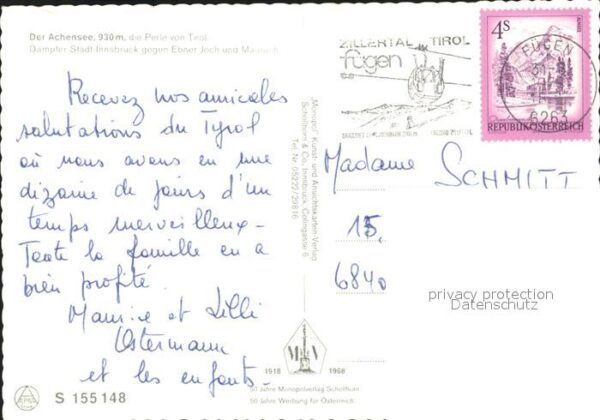 Der Achensee, 930 m, die Perle von Tirol
Dampfer Stadt Innsbruck gegen Ebner Joch und Maurach
Recevez nos amicales
salutations du Tyrol
où nous avons eu une
dizaine de jours d'un
temps merveilleux -
Toute la famille en a
bien profité.
Maurice et Lilli
Ostermann
et les enfants -
S 155148
"Monopol" Kunst- und Ansichtskarten-Verlag
Schöllhorn & Co, Innsbruck,
Tel. Nr. 05222/29816
1918 1968
50 Jahre Monopolverlag Schöllhorn
50 Jahre Werbung für Österreich
ZILLERTAL TIROL
fügen
4S
REPUBLIK ÖSTERREICH
FÜGEN
6263
Madame SCHMITT
15,
6840
privacy protection
Datenschutz